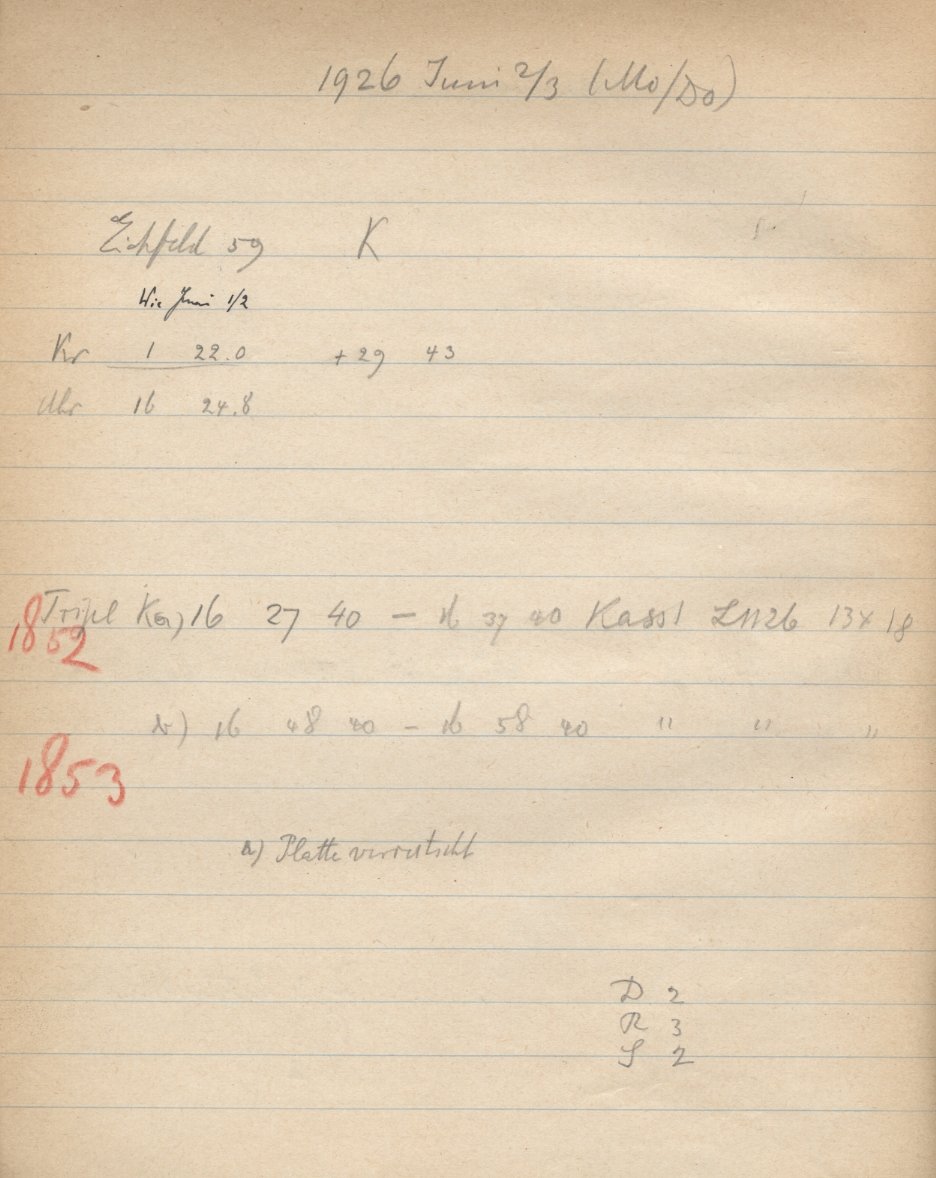 1926 Juni 2/3 (Mo/Do)
Eichfeld 59 K
Wie Juni 1/2
Kr 1 22.0 + 29 43
Uhr 16 24.8
Tripel Ka) 16 27 40 — 16 37 40 Kass1 13 x 18
1852
b) 16 48 40 — 16 58 40 " " "
1853
a) Platte verrutscht
D 2
R 3
S 2